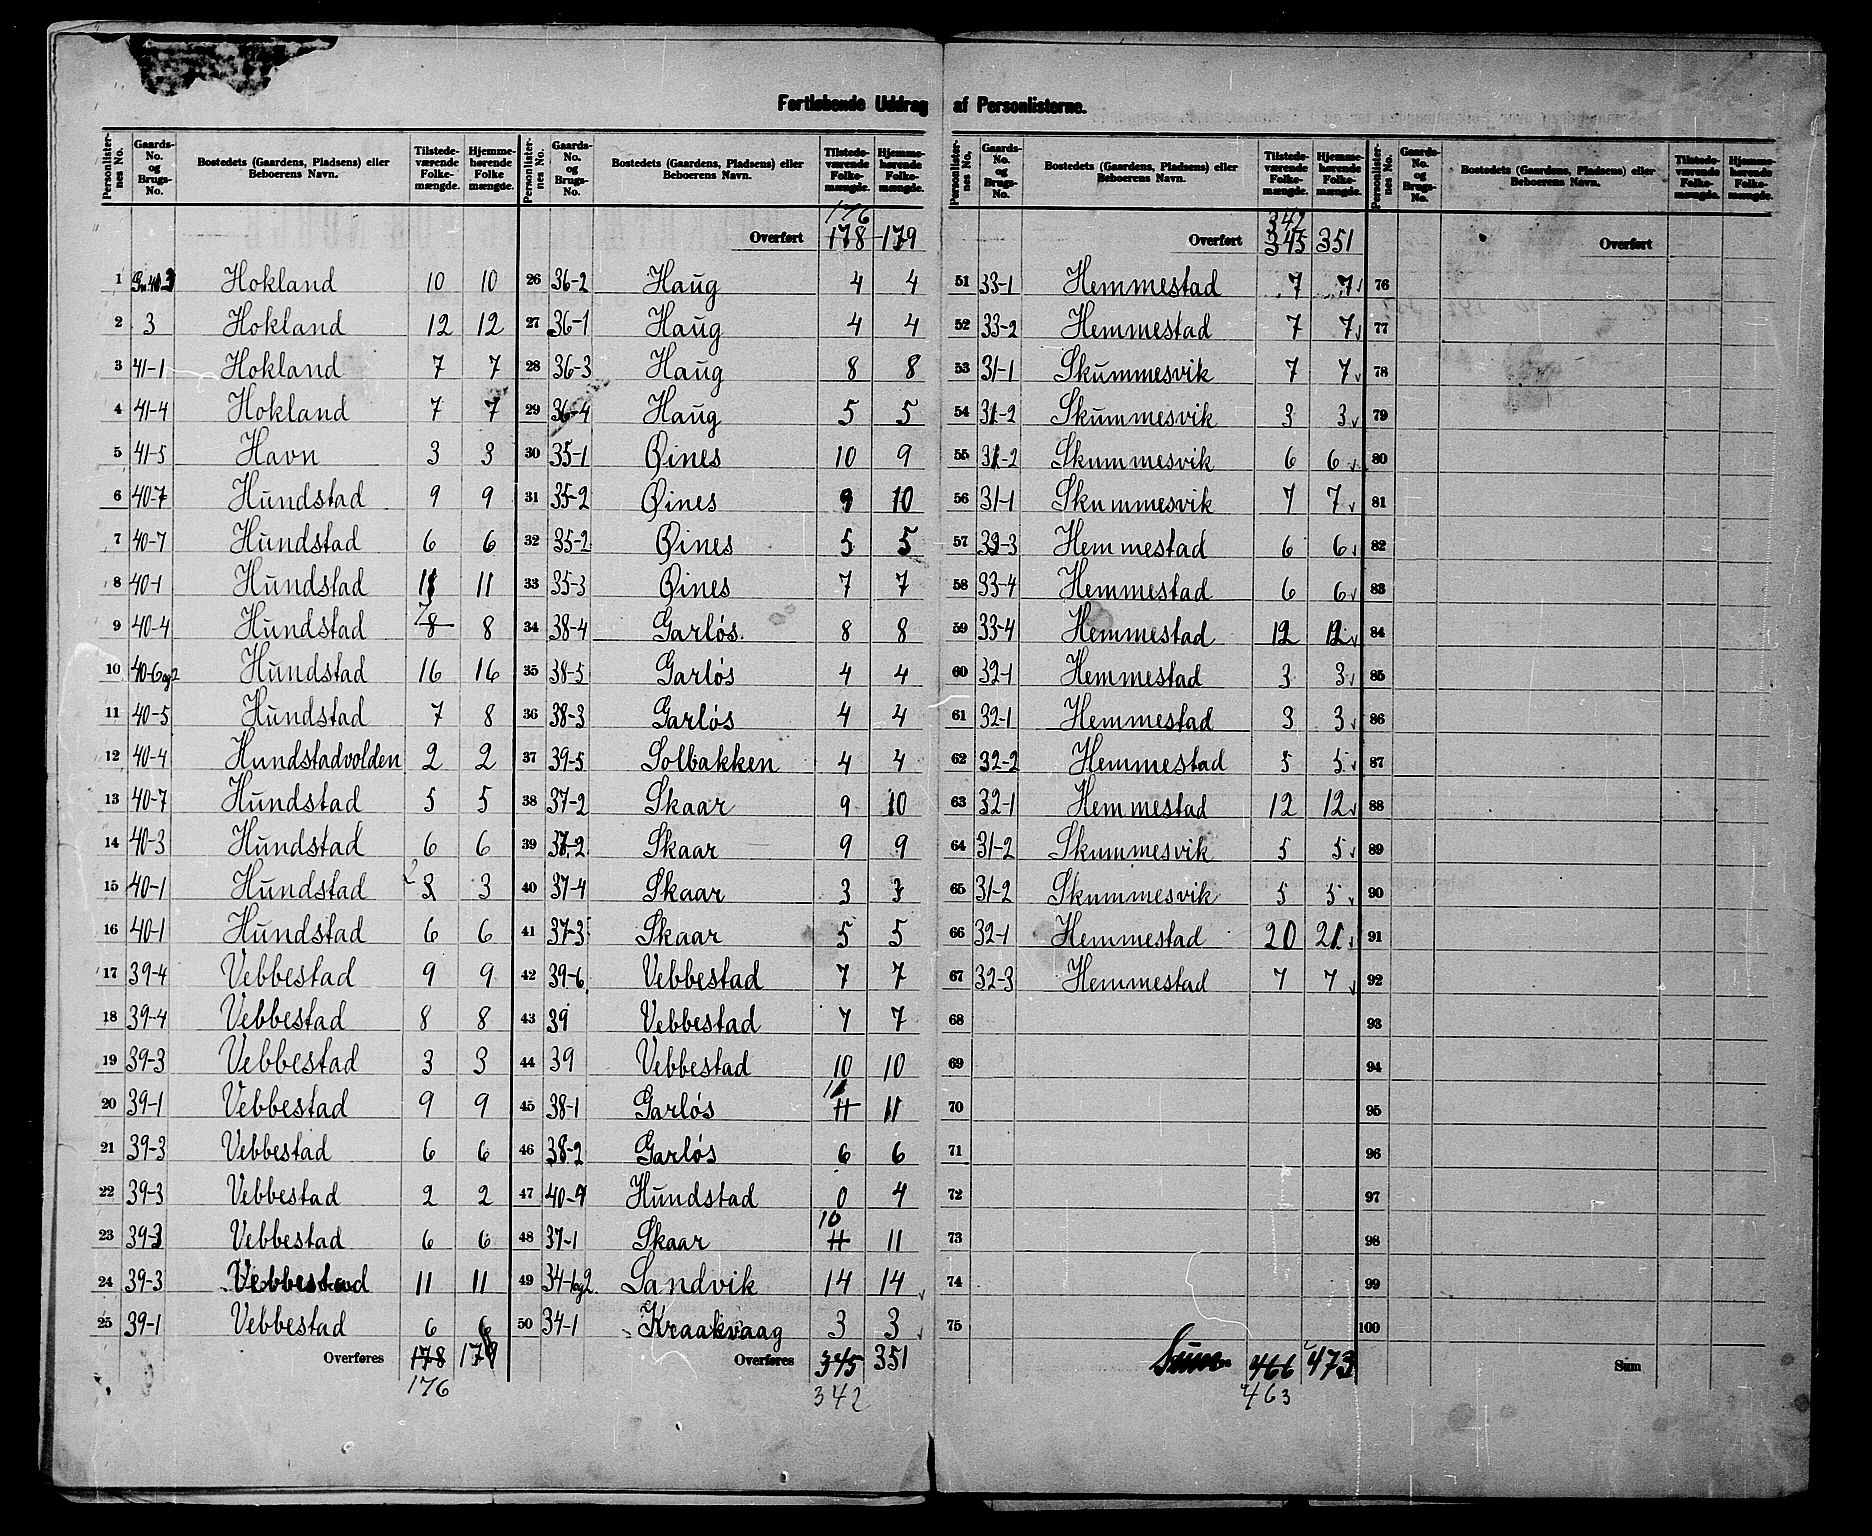 Fortløbende Uddrag af Personlisterne.
Personlister-nes No. | Gaards-No. og Brugs-No. | Bostedets (Gaardens, Pladsens) eller Beboerens Navn. | Tilstede-værende Folke-mængde. | Hjemme-hørende Folke mængde.
1 Gn. 40.3 Hokland 10 10
2 3 Hokland 12 12
3 41-1 Hokland 7 7
4 41-4 Hokland 7 7
5 41-5 Havn 3 3
6 40-7 Hundstad 9 9
7 40-7 Hundstad 6 6
8 40-1 Hundstad 11 11
9 40-4 Hundstad 7 8 8
10 40-6og2 Hundstad 16 16
11 40-5 Hundstad 7 8
12 40-4 Hundstadvolden 2 2
13 40-7 Hundstad 5 5
14 40-3 Hundstad 6 6
15 40-1 Hundstad 2 3 3
16 40-1 Hundstad 6 6
17 39-4 Vebbestad 9 9
18 39-4 Vebbestad 8 8
19 39-3 Vebbestad 3 3
20 39-1 Vebbestad 9 9
21 39-3 Vebbestad 6 6
22 39-3 Vebbestad 2 2
23 39-3 Vebbestad 6 6
24 39-3 Vebbestad 11 11
25 39-1 Vebbestad 6 6
Overføres 178 179
176
Personlister-nes No. | Gaards-No. og Brugs-No. | Bostedets (Gaardens, Pladsens) eller Beboerens Navn. | Tilstede-værende Folke-mængde. | Hjemme-hørende Folke-mængde.
176
Overført 178 179
26 36-2 Haug 4 4
27 36-1 Haug 4 4
28 36-3 Haug 8 8
29 36-4 Haug 5 5
30 35-1 Øines 10 9
31 35-2 Øines 9 10
32 35-2 Øines 5 5
33 35-3 Øines 7 7
34 38-4 Garløs. 8 8
35 38-5 Garløs 4 4
36 38-3 Garløs 4 4
37 39-5 Solbakken 4 4
38 37-2 Skaar 9 10
39 37-2 Skaar 9 9
40 37-4 Skaar 3 3
41 37-3 Skaar 5 5
42 39-6 Vebbestad 7 7
43 39 Vebbestad 7 7
44 39 Vebbestad 10 10
45 38-1 Garløs 11 11
46 38-2 Garløs 6 6
47 40-9 Hundstad 0 4
48 37-1 Skaar 10 11 11
49 34-1og2. Sandvik 14 14
50 34-1 Kraakvaag 3 3
Overføres 345 351
342
Personlister-nes No. | Gaards-No. og Brugs-No. | Bostedets (Gaardens, Pladsens) eller Beboerens Navn. | Tilstede-værende Folke-mængde. | Hjemme-hørende Folke-mængde.
342
Overført 345 351
51 33-1 Hemmestad 7 7
52 33-2 Hemmestad 7 7
53 31-1 Skummesvik 7 7
54 31-2 Skummesvik 3 3
55 31-2 Skummesvik 6 6
56 31-1 Skummesvik 7 7
57 33-3 Hemmestad 6 6
58 33-4 Hemmestad 6 6
59 33-4 Hemmestad 12 12
60 32-1 Hemmestad 3 3
61 32-1 Hemmestad 3 3
62 32-2 Hemmestad 5 5
63 32-1 Hemmestad 12 12
64 31-2 Skummesvik 5 5
65 31-2 Skummesvik 5 5
66 32-1 Hemmestad 20 21
67 32-3 Hemmestad 7 7
68
69
70
71
72
73
74
75
Sum 466 473
463
Personlister-nes No. | Gaards-No. og Brugs-No. | Bostedets (Gaardens, Pladsens) eller Beboerens Navn. | Tilstede-værende Folke-mængde. | Hjemme-hørende Folke-mængde.
Overført
76
77
78
79
80
81
82
83
84
85
86
87
88
89
90
91
92
93
94
95
96
97
98
99
100
Sum